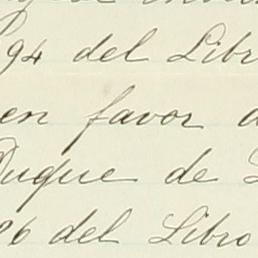 94 del Libr
en favor d
Duque de L
96 del Libro